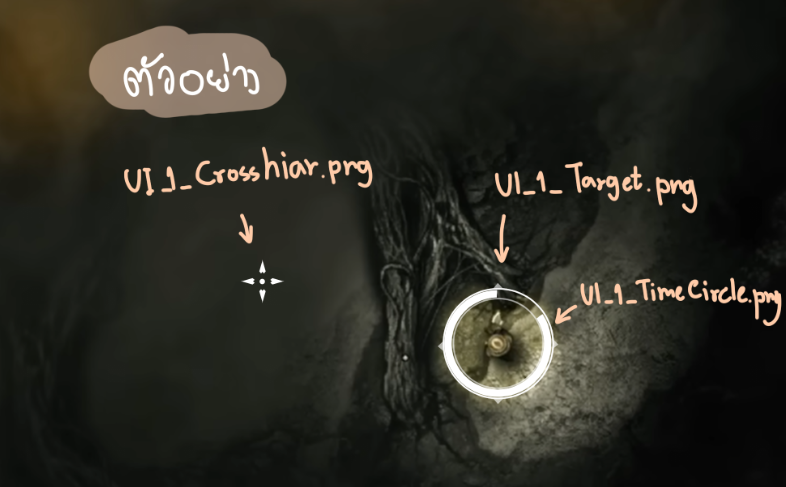 ตัวอย่าง
UI_1_Crosshiar.png
UI_1_Target.png
UI_1_TimeCircle.png